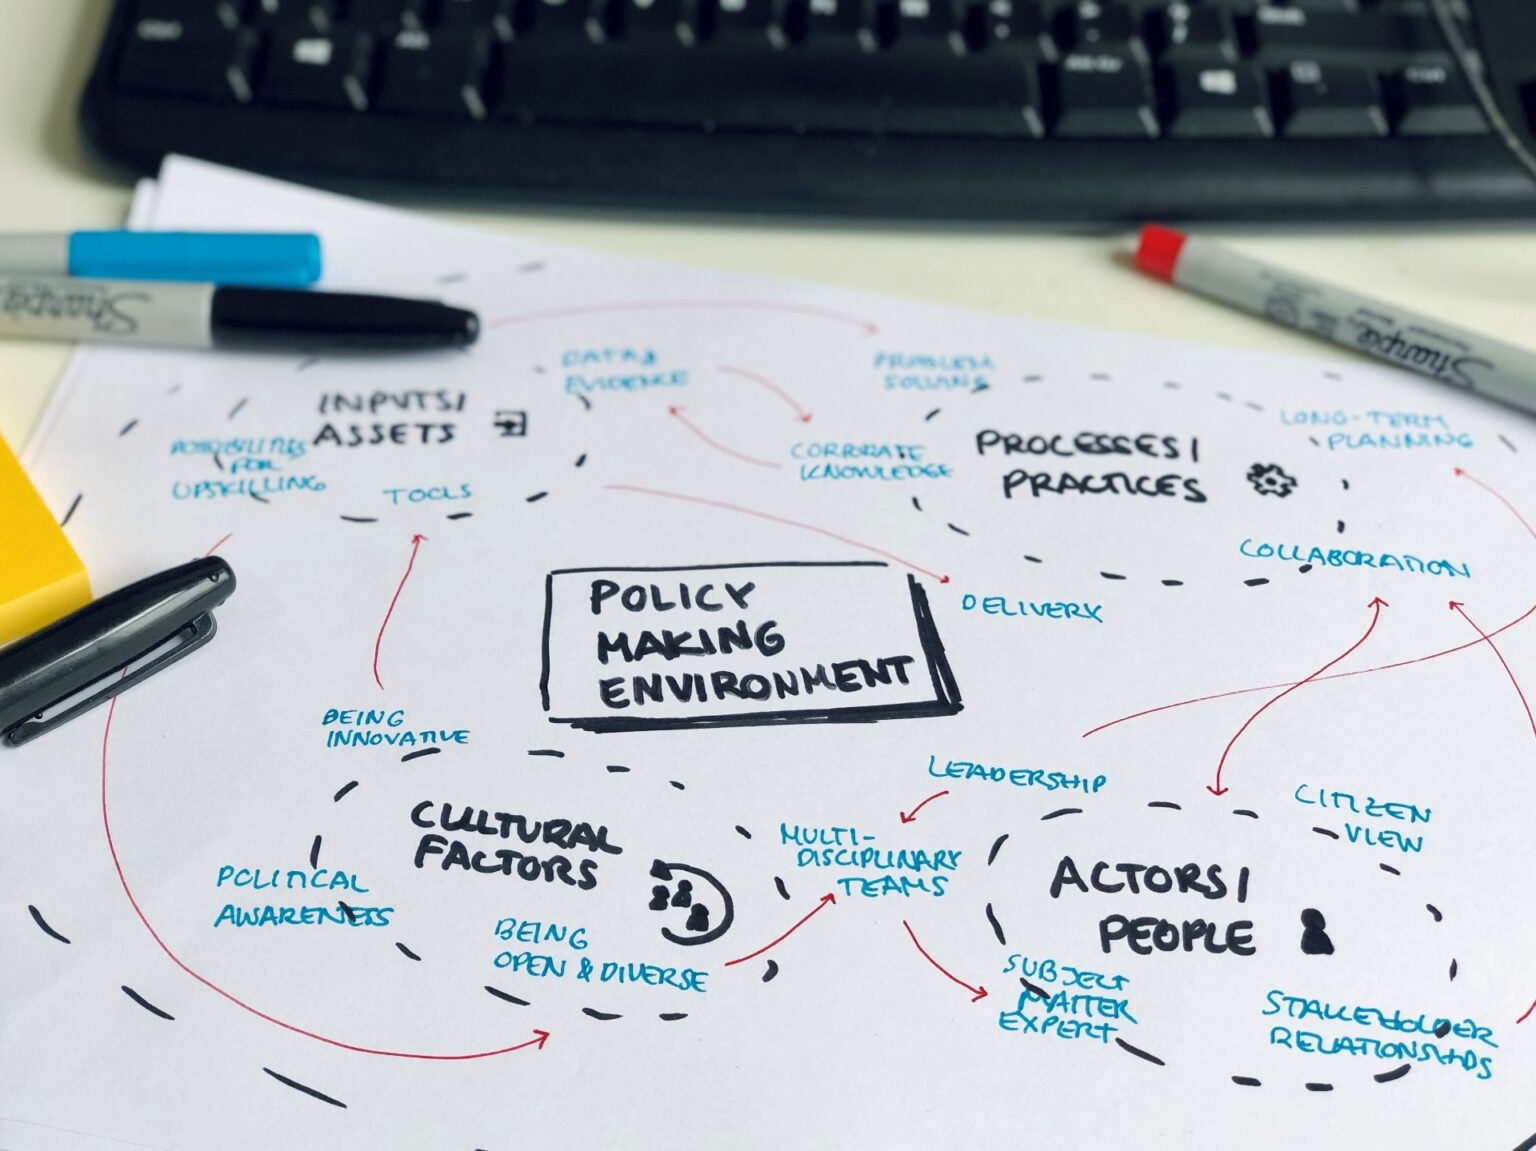 Sharpie
Sharpie
DATA &
EVIDENCE
PROBLEM
SOLVING
INPUTS/
ASSETS
POSSIBILITIES
FOR
UPSKILLING
TOOLS
CORPORATE
KNOWLEDGE
PROCESSES/
PRACTICES
LONG-TERM
PLANNING
COLLABORATION
DELIVERY
POLICY
MAKING
ENVIRONMENT
BEING
INNOVATIVE
CULTURAL
FACTORS
POLITICAL
AWARENESS
BEING
OPEN & DIVERSE
LEADERSHIP
MULTI-
DISCIPLINARY
TEAMS
CITIZEN
VIEW
ACTORS/
PEOPLE
SUBJECT
MATTER
EXPERT
STAKEHOLDER
RELATIONSHIPS